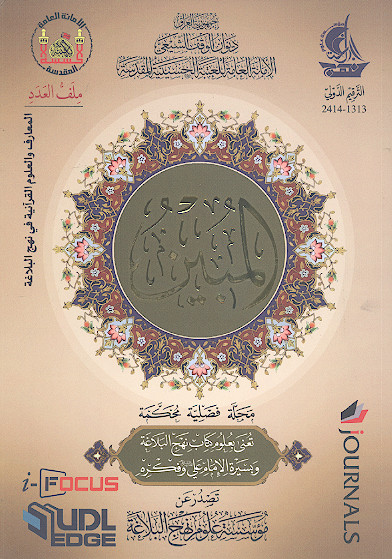 جمهورية العراق
ديوان الوقف الشيعي
الأمانة العامة للعتبة الحسينية المقدسة
الأمانة العامة
المقدسة
ملف العدد
المعارف والعلوم القرآنية في نهج البلاغة
الترقيم الدولي
2414-1313
المبين
مجلة فصلية محكمة
تعنى بعلوم كتاب نهج البلاغة
وبسيرة الإمام علي وفكره
تصدر عن
مؤسسة علوم نهج البلاغة
i-FOCUS
SUDL
EDGE
iJOURNALS